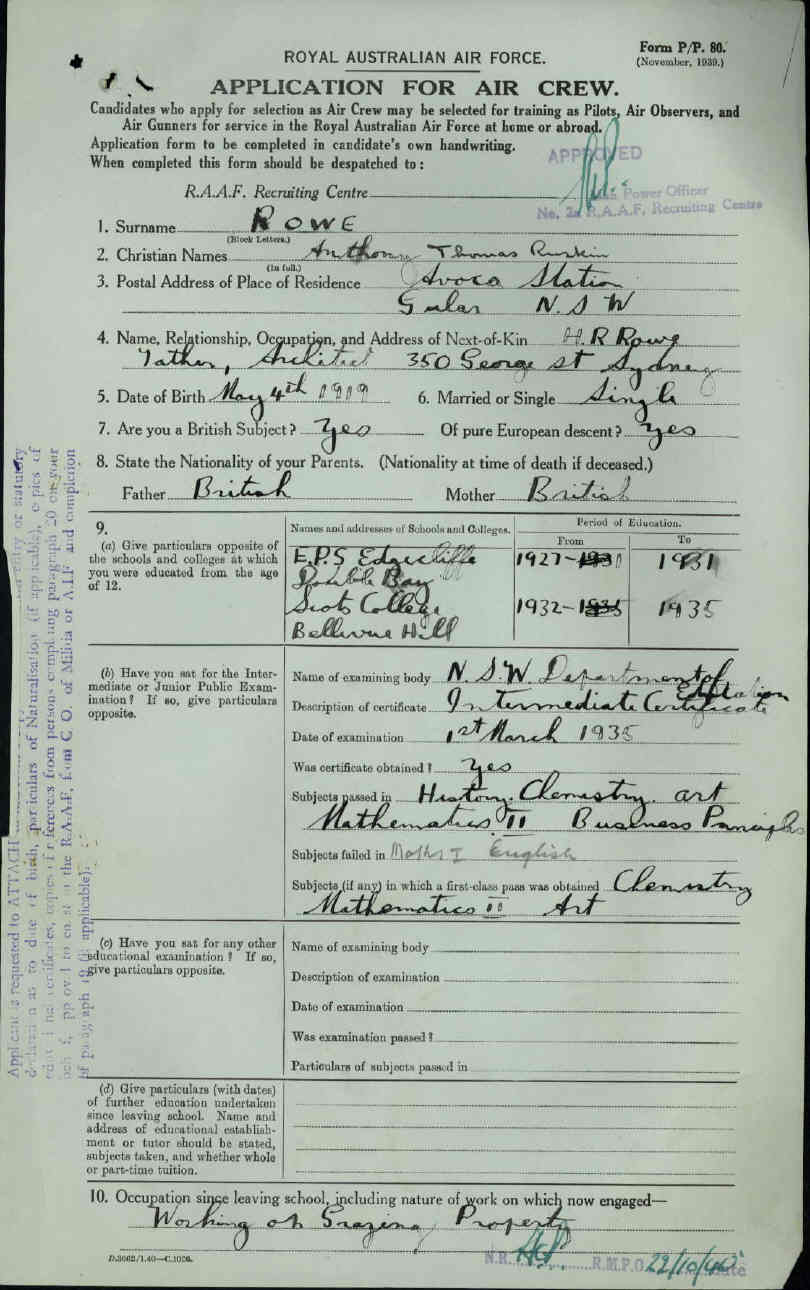 Form P/P. 80.
(November, 1939.)
ROYAL AUSTRALIAN AIR FORCE.
APPLICATION FOR AIR CREW.
Candidates who apply for selection as Air Crew may be selected for training as Pilots, Air Observers, and
Air Gunners for service in the Royal Australian Air Force at home or abroad.
Application form to be completed in candidate's own handwriting.
When completed this form should be despatched to:
APPROVED
R.A.A.F. Recruiting Centre
Power Officer
No. 2a R.A.A.F. Recruiting Centre
1. Surname ROWE
(Block Letters.)
2. Christian Names Anthony Thomas Ruskin
(In full.)
3. Postal Address of Place of Residence Avoca Station
Gular N.S.W
4. Name, Relationship, Occupation, and Address of Next-of-Kin H.R Rowe
Father, Architect 350 George St Sydney
5. Date of Birth May 4th 1919 6. Married or Single Single
7. Are you a British Subject? Yes Of pure European descent? Yes
8. State the Nationality of your Parents. (Nationality at time of death if deceased.)
Father British Mother British
9.
(a) Give particulars opposite of
the schools and colleges at which
you were educated from the age
of 12.
Names and addresses of Schools and Colleges.
Period of Education.
From To
E.P.S Edgecliffe 1927- 1931
Double Bay
Scots College 1932- 1935
Bellevue Hill
(b) Have you sat for the Inter-
mediate or Junior Public Exam-
ination? If so, give particulars
opposite.
Name of examining body N.S.W. Department of
Education
Description of certificate Intermediate Certificate
Date of examination 1st March 1935
Was certificate obtained? Yes
Subjects passed in History. Chemistry. Art
Mathematics II Business Principles
Subjects failed in Maths I English
Subjects (if any) in which a first-class pass was obtained Chemistry
Mathematics II Art
(c) Have you sat for any other
educational examination? If so,
give particulars opposite.
Name of examining body
Description of examination
Date of examination
Was examination passed?
Particulars of subjects passed in
(d) Give particulars (with dates)
of further education undertaken
since leaving school. Name and
address of educational establish-
ment or tutor should be stated,
subjects taken, and whether whole
or part-time tuition.
10. Occupation since leaving school, including nature of work on which now engaged—
Working on Grazing Property
D.3662/1.40—C.1026.
N.R. R.M.P.O. 22/10/40
Applicant is requested to ATTACH or statutory
declaration as to date of birth, particulars of Naturalisation (if applicable), copies of
educational certificates, copies of references from persons completing paragraph 20 on your
approval to enlist in the R.A.A.F. from C.O. of Militia or A.I.F. and completion
of paragraph 19 (if applicable).